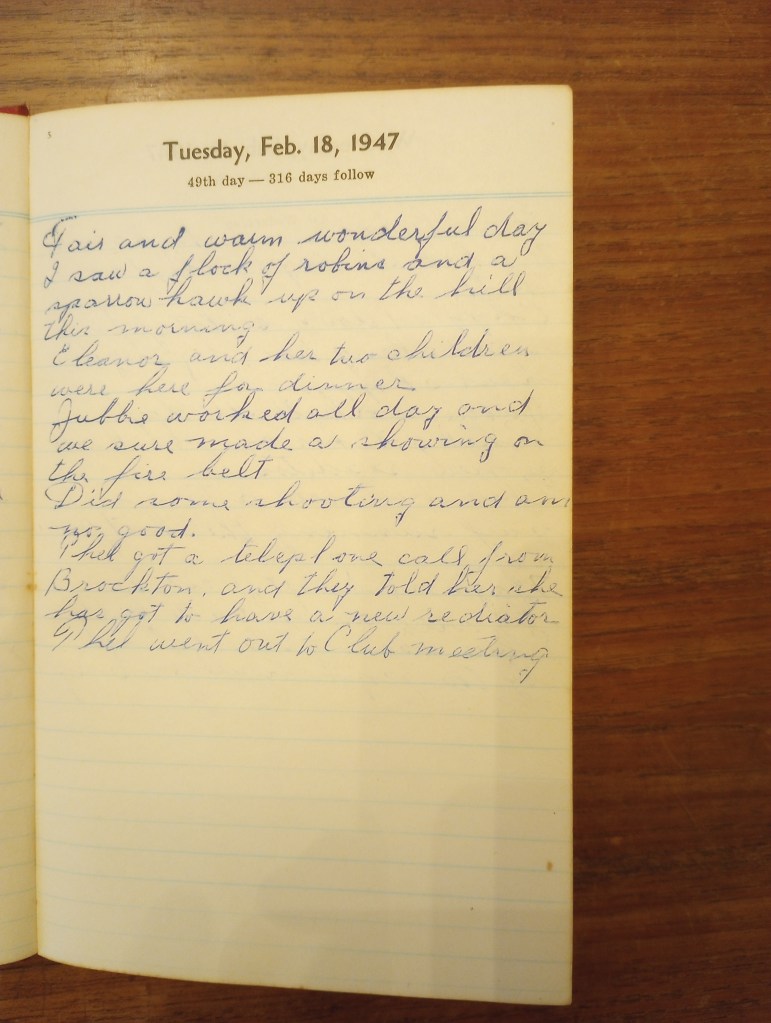 Tuesday, Feb. 18, 1947
49th day — 316 days follow
Fair and warm wonderful day
I saw a flock of robins and a
sparrow hawk up on the hill
this morning.
Eleanor and her two children
were here for dinner.
Jubbie worked all day and
we sure made a showing on
the fire belt.
Did some shooting and am
no good.
Phel got a telephone call from
Brockton, and they told her she
has got to have a new rediator
Phel went out to Club meeting